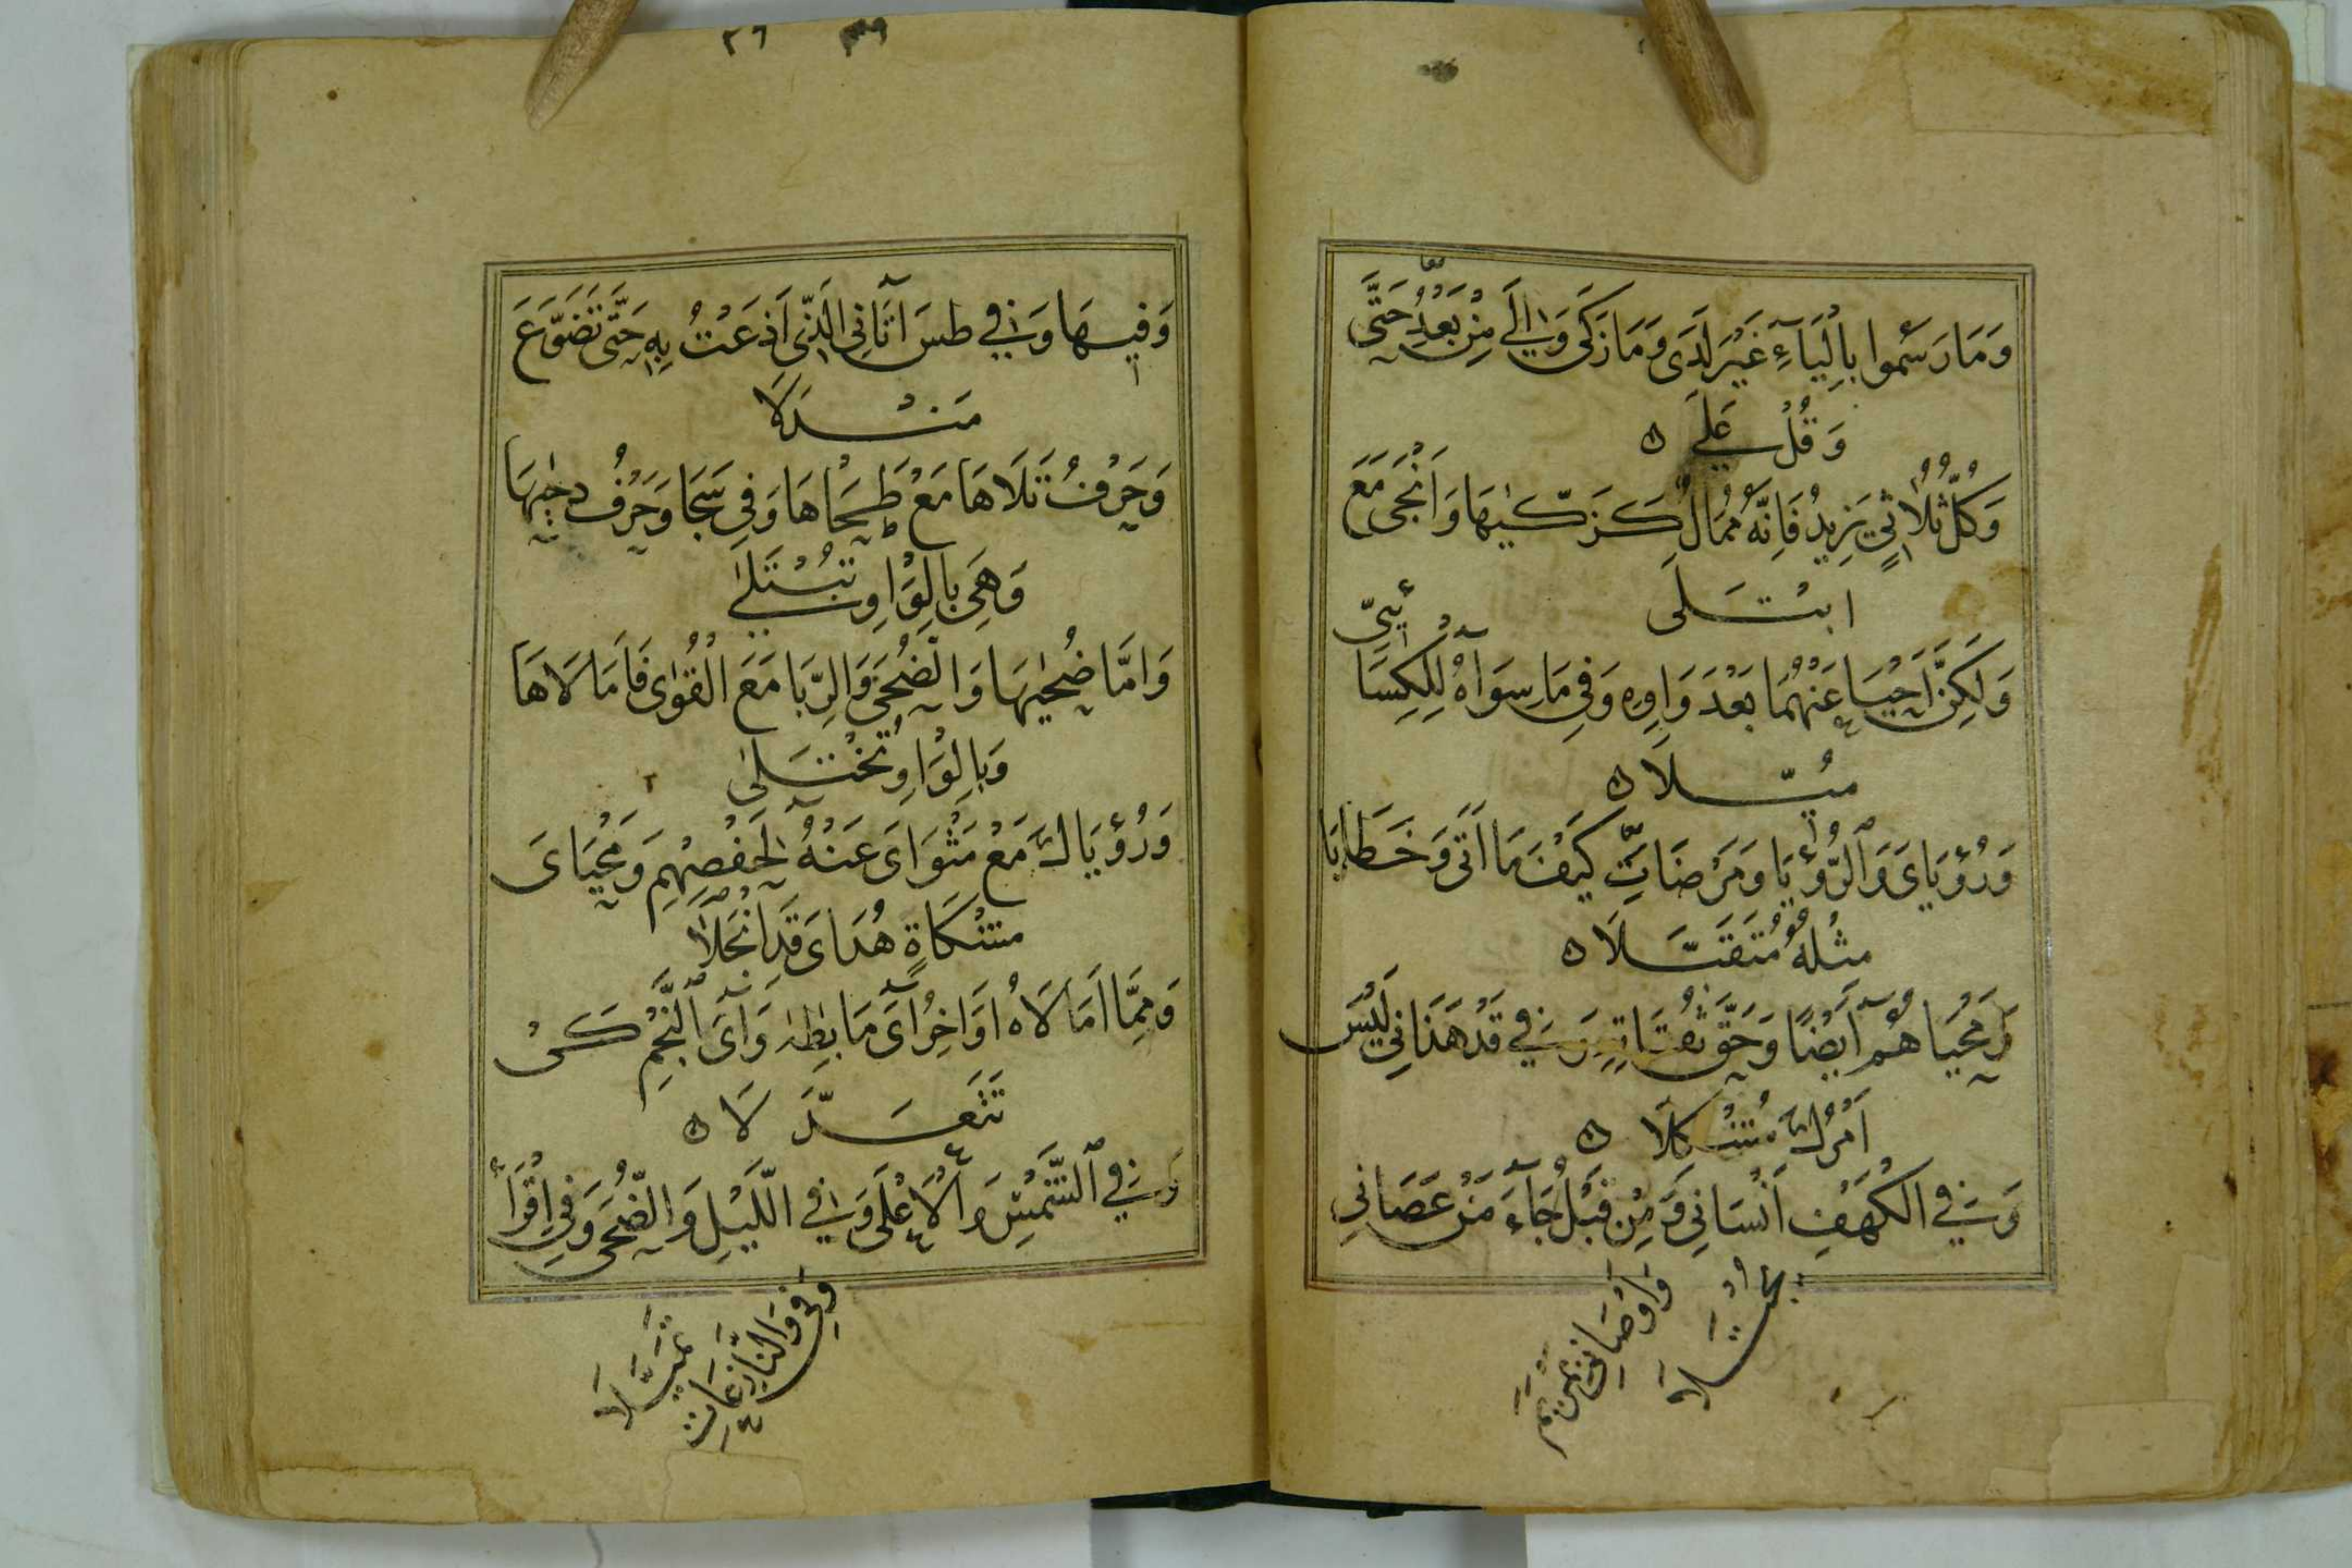 وَمَا رَسَمُوا بِالْيَآءِ غَيْرَ لَدَى وَمَا زَكَى وَاِلَى مِنْ بَعْدُ حَتَّى
وَقُلْ عَلَى
وَكُلُّ ثُلَاثِيٍّ يَزِيدُ فَاِنَّهُ مُمَالٌ كَزَكّٰيهَا وَاَنْجَى مَعَ
ابْتَلَى
وَلَكِنَّ اَحْيَا عَنْهُمَا بَعْدَ وَاوِهِ وَفِي مَا سِوَاهُ لِلْكِسَائِيّ
مُيِّلَا
وَرُؤْيَايَ وَالرُّؤْيَا وَمَرْضَاتِ كَيْفَ مَا اَتَى وَخَطَايَا
مِثْلُهُ مُتَقَبَّلَا
وَمَحْيَاهُمُ اَيْضًا وَحَقَّ تُقَاتِهِ وَفِي قَدْ هَدَانِي لَيْسَ
اَمْرُكَ مُشْكِلَا
وَفِي الْكَهْفِ اَنْسَانِي وَمِنْ قَبْلُ جَآءَ مَنْ عَصَانِي
وَاَوْصَانِي بِمَرْيَمَ
يُجْتَلَا
٣٦
وَفِيهَا وَفِي طسَ آتَانِيَ الَّذِي اَذَعْتُ بِهِ حَتَّى تَضَوَّعَ
مَنْدَلَا
وَحَرْفُ تَلَاهَا مَعْ طَحَاهَا وَفِي سَجَا وَحَرْفُ دَحٰيهَا
وَهْيَ بِالْوَاوِ تُبْتَلَى
وَاَمَّا ضُحٰيهَا وَالضُّحَى وَالرِّبَا مَعَ الْقُوٰى فَاَمَالَاهَا
وَبِالْوَاوِ تُخْتَلَى
وَرُؤْيَاكَ مَعْ مَثْوَايَ عَنْهُ لِحَفْصِهِمْ وَمَحْيَايَ
مِشْكَاةٍ هُدَايَ قَدِ انْجَلَا
وَمِمَّا اَمَالَاهُ اَوَاخِرُ آيِ مَا بِطٰهٰ وَآيِ النَّجْمِ كَيْ
تَتَعَدَّلَا
وَفِي الشَّمْسِ وَالْاَعْلَى وَفِي اللَّيْلِ وَالضُّحَى وَفِي اِقْرَأْ
وَفِي وَالنَّازِعَاتِ
تَمَيَّلَا